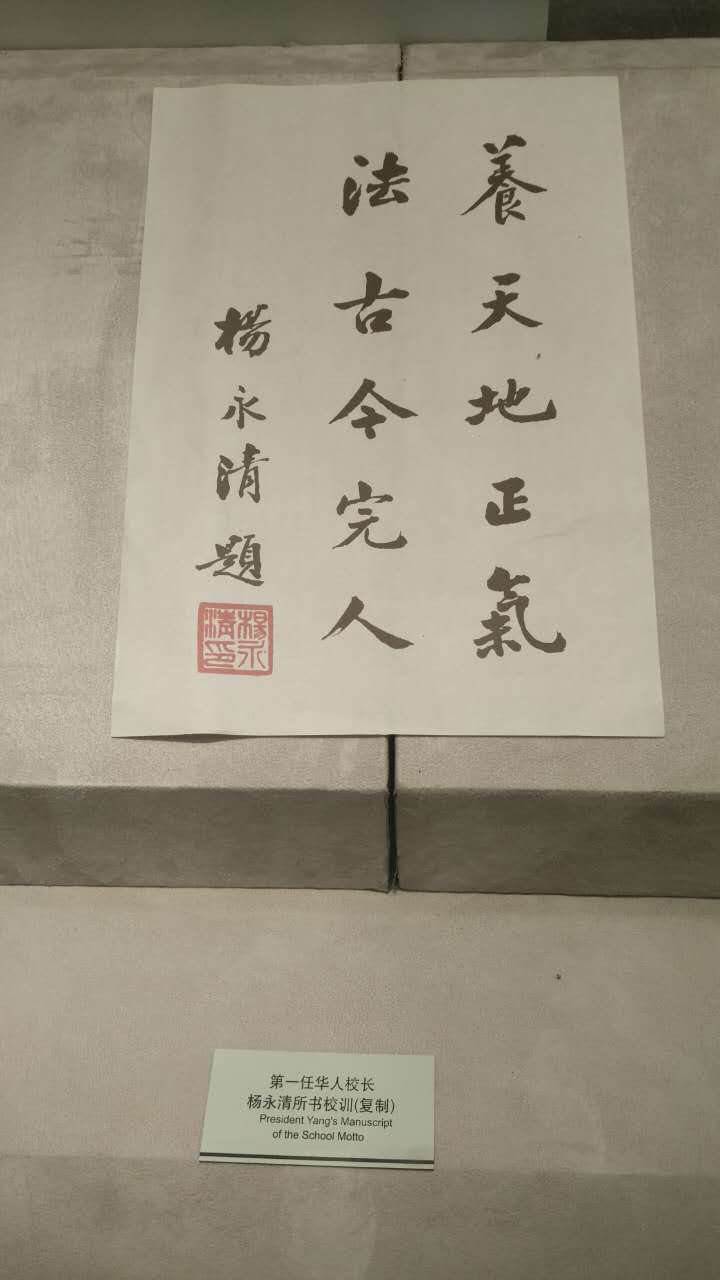 養天地正氣
法古今完人
楊永清題
楊永清印
第一任华人校长
杨永清所书校训(复制)
President Yang's Manuscript
of the School Motto